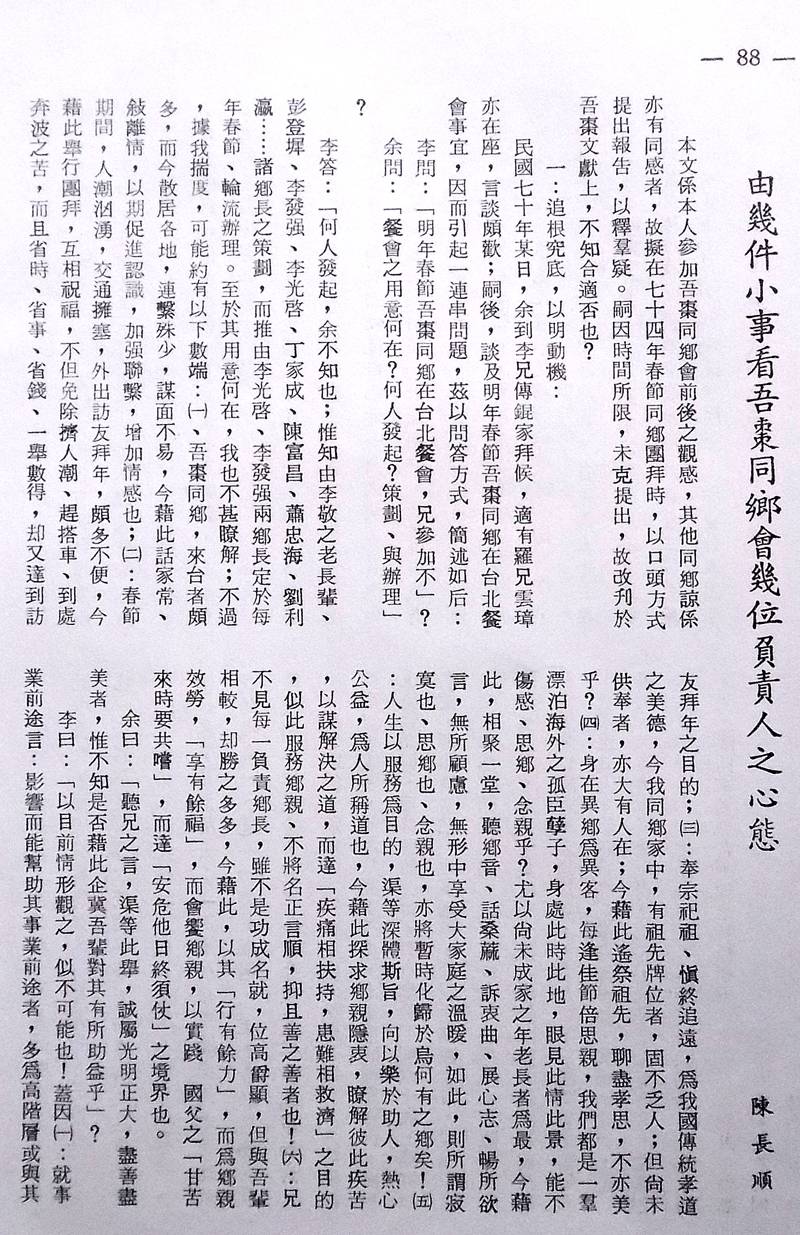 — 88 —
由幾件小事看吾棗同鄉會幾位負責人之心態
陳長順
本文係本人參加吾棗同鄉會前後之觀感，其他同鄉諒係
亦有同感者，故擬在七十四年春節同鄉團拜時，以口頭方式
提出報告，以釋羣疑。嗣因時間所限，未克提出，故改刋於
吾棗文獻上，不知合適否也？
一：追根究底，以明動機：
民國七十年某日，余到李兄傳錕家拜候，適有羅兄雲璋
亦在座，言談頗歡；嗣後，談及明年春節吾棗同鄉在台北餐
會事宜，因而引起一連串問題，茲以問答方式，簡述如后：
李問：「明年春節吾棗同鄉在台北餐會，兄參加不」？
余問：「餐會之用意何在？何人發起？策劃、與辦理」
？
李答：「何人發起，余不知也；惟知由李敬之老長輩、
彭登墀、李發强、李光啓、丁家成、陳富昌、蕭忠海、劉利
瀛……諸鄉長之策劃，而推由李光啓、李發强兩鄉長定於每
年春節、輪流辦理。至於其用意何在，我也不甚瞭解；不過
，據我揣度，可能約有以下數端：㈠、吾棗同鄉，來台者頗
多，而今散居各地，連繫殊少，謀面不易，今藉此話家常、
敍離情，以期促進認識，加强聯繫，增加情感也；㈡：春節
期間，人潮汹湧，交通擁塞，外出訪友拜年，頗多不便，今
藉此舉行團拜，互相祝福，不但免除擠人潮、趕搭車、到處
奔波之苦，而且省時、省事、省錢、一舉數得，却又達到訪
友拜年之目的；㈢：奉宗祀祖、愼終追遠，爲我國傳統孝道
之美德，今我同鄉家中，有祖先牌位者，固不乏人；但尙未
供奉者，亦大有人在；今藉此遙祭祖先，聊盡孝思，不亦美
乎？㈣：身在異鄉爲異客，每逢佳節倍思親，我們都是一羣
漂泊海外之孤臣孽子，身處此時此地，眼見此情此景，能不
傷感、思鄉、念親乎？尤以尙未成家之年老長者爲最，今藉
此，相聚一堂，聽鄉音、話桑蔴、訴衷曲、展心志、暢所欲
言，無所顧慮，無形中享受大家庭之溫暖，如此，則所謂寂
寞也、思鄉也、念親也，亦將暫時化歸於烏何有之鄉矣！㈤
：人生以服務爲目的，渠等深體斯旨，向以樂於助人，熱心
公益，爲人所稱道也，今藉此探求鄉親隱衷，瞭解彼此疾苦
，以謀解決之道，而達「疾痛相扶持，患難相救濟」之目的
，似此服務鄉親、不將名正言順，抑且善之善者也！㈥：兄
不見每一負責鄉長，雖不是功成名就，位高爵顯，但與吾輩
相較，却勝之多多，今藉此，以其「行有餘力」，而爲鄉親
效勞，「享有餘福」，而會饗鄉親，以實踐　國父之「甘苦
來時要共嚐」，而達「安危他日終須仗」之境界也。
余曰：「聽兄之言，渠等此舉，誠屬光明正大，盡善盡
美者，惟不知是否藉此企冀吾輩對其有所助益乎」？
李曰：「以目前情形觀之，似不可能也！蓋因㈠：就事
業前途言：影響而能幫助其事業前途者，多爲高階層或與其